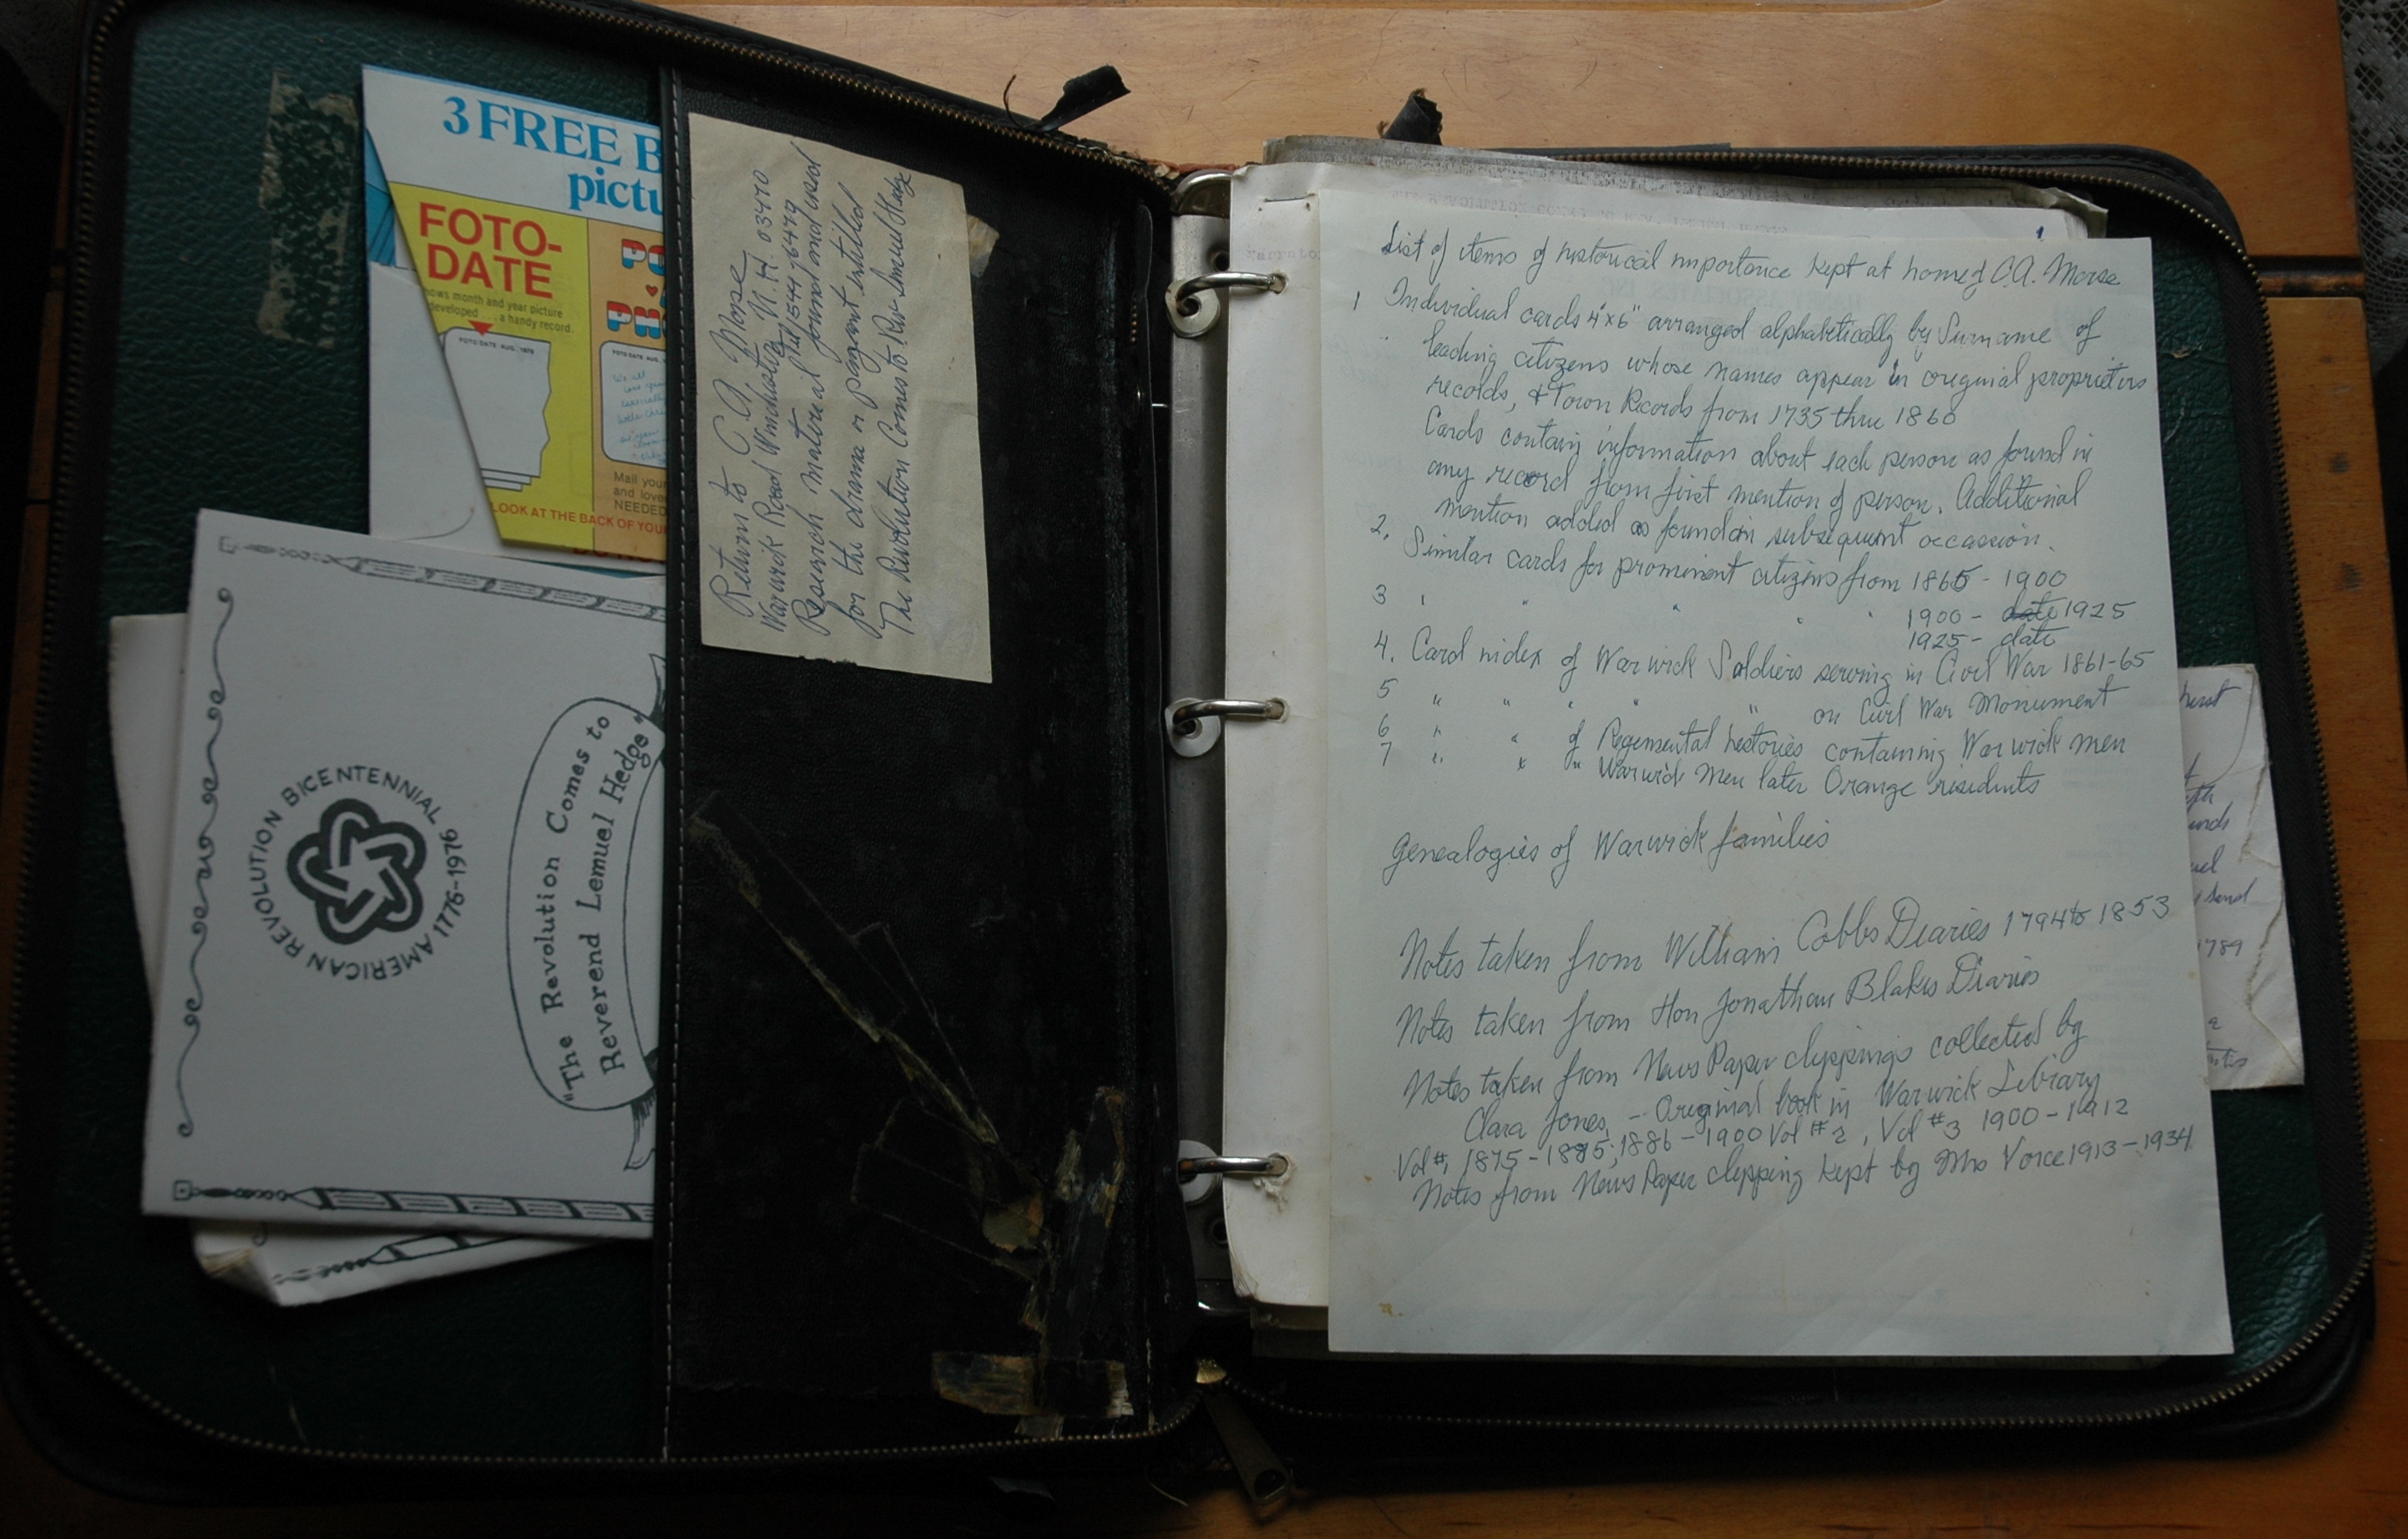 3 FREE B
pictu
FOTO-
DATE
ows month and year picture
developed . . . a handy record.
FOTO DATE AUG. 1976
PO
PH
Mail your
and love
NEEDED
LOOK AT THE BACK OF YOU
AMERICAN REVOLUTION BICENTENNIAL
1776-1976
"The Revolution Comes to
Reverend Lemuel Hedge"
Return to C. A. Morse
Warwick Road Winchester N.H. 03470
Research material found and used
for the drama or pageant intitled
The Revolution Comes to Rev Lemuel Hedge
1
List of items of historical importance kept at home of C.A. Morse
1 Individual cards 4"x6" arranged alphabetically by Surname of
leading citizens whose names appear in original proprietors
records, & Town Records from 1735 thru 1860
Cards contain information about each person as found in
any record from first mention of person. Additional
mention added as found in subsequent occassion.
2. Similar cards for prominent citizens from 1865 - 1900
3 " " " " " 1900 - date 1925
1925 - date
4. Card index of Warwick Soldiers serving in Civil War 1861-65
5 " " " " " on Civil War Monument
6 " " of Regimental histories containing Warwick men
7 " " " Warwick Men later Orange residents
Genealogies of Warwick families
Notes taken from William Cobbs Diaries 1794 to 1853
Notes taken from Hon Jonathan Blakes Diaries
Notes taken from News Paper clippings collected by
Clara Jones, - Original book in Warwick Library
Vol #1 1875-1885; 1886-1900 Vol #2, Vol #3 1900-1912
Notes from News Paper clipping kept by Mrs Vorce 1913-1934
1789